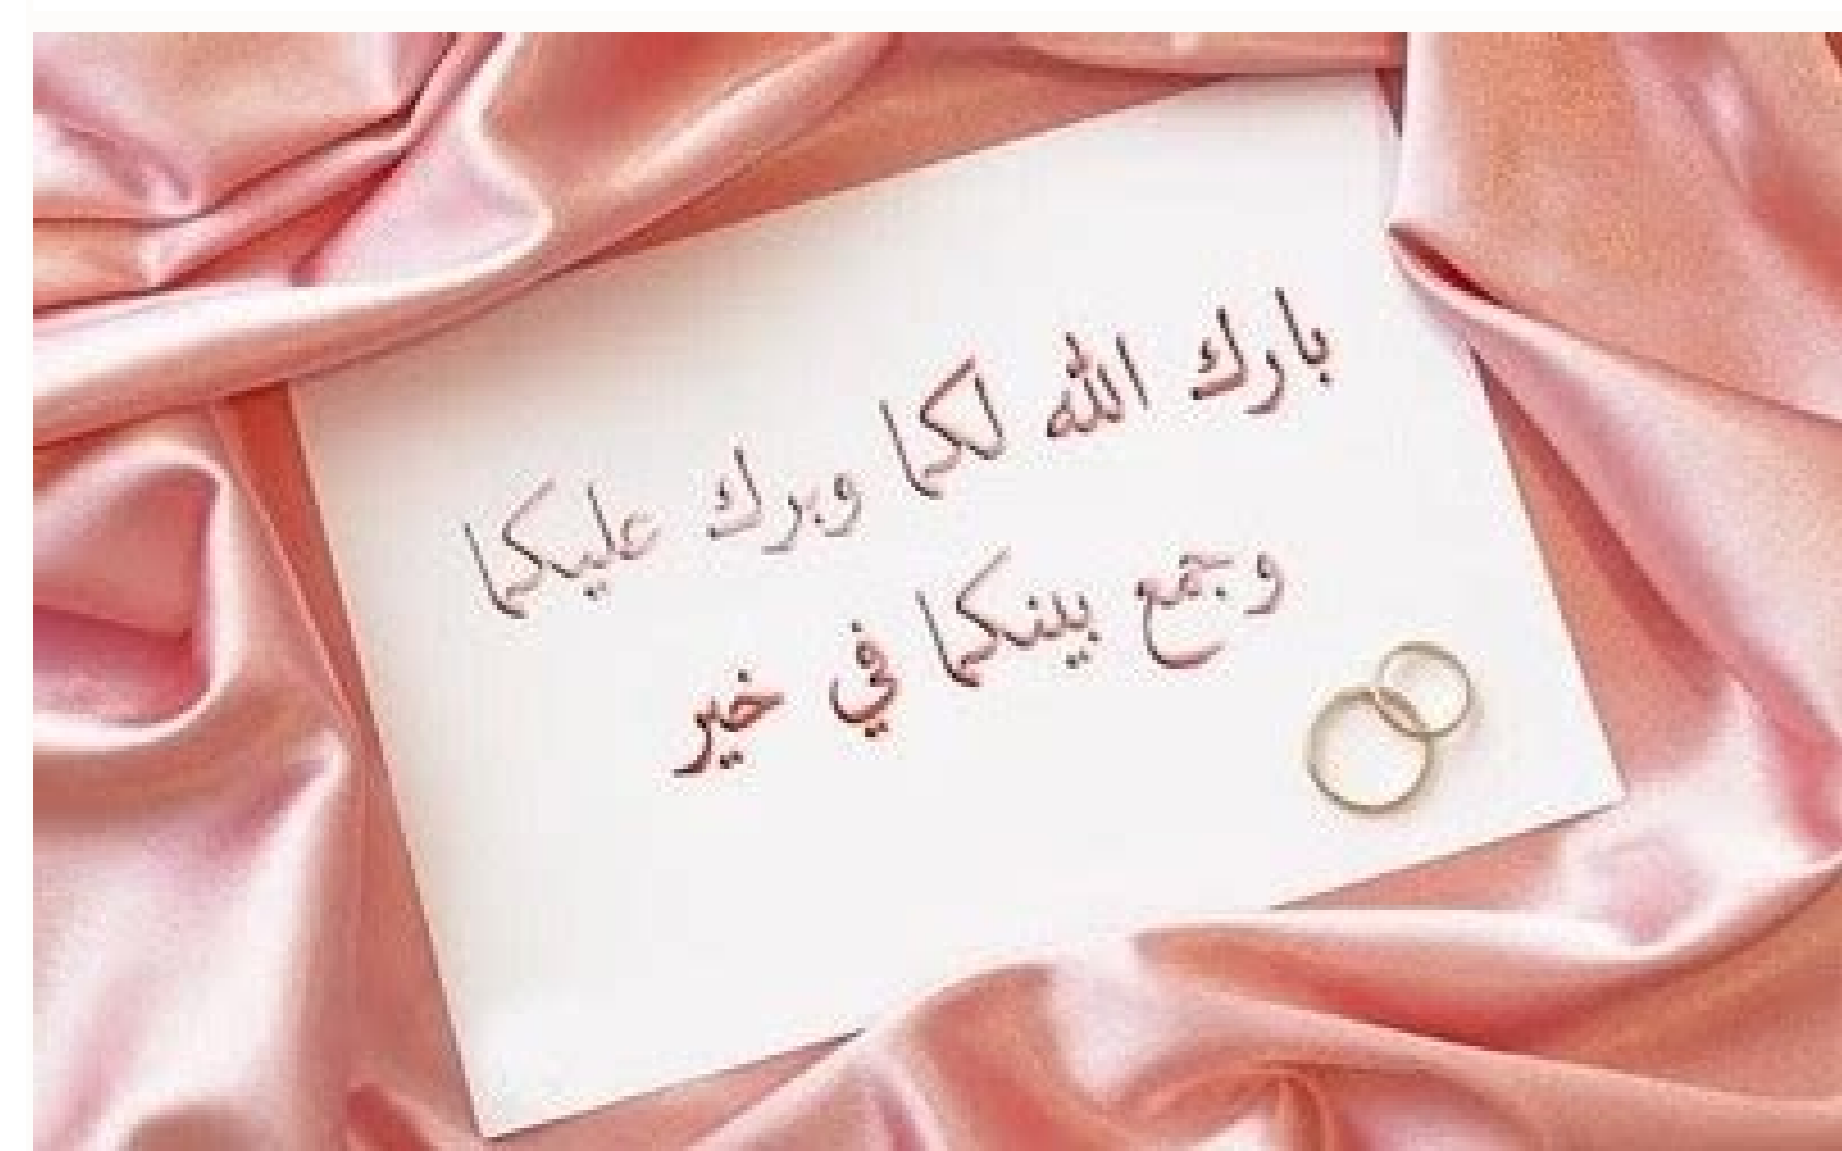 بارك الله لكما وبرك عليكما
وجمع بينكما في خير